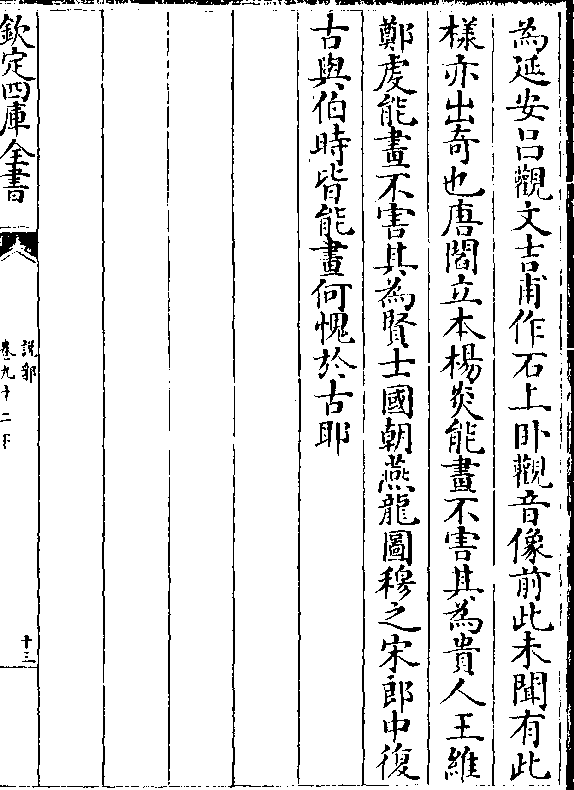 為延安呂觀文吉甫作石上卧觀音像前此未聞有此
樣亦出奇也唐閻立本楊炎能畫不害其為貴人王維
鄭虔能畫不害其為賢士國朝燕龍圖穆之宋郎中復
古與伯時皆能畫何愧於古耶
欽定四庫全書
說郛
卷九十二下
十三